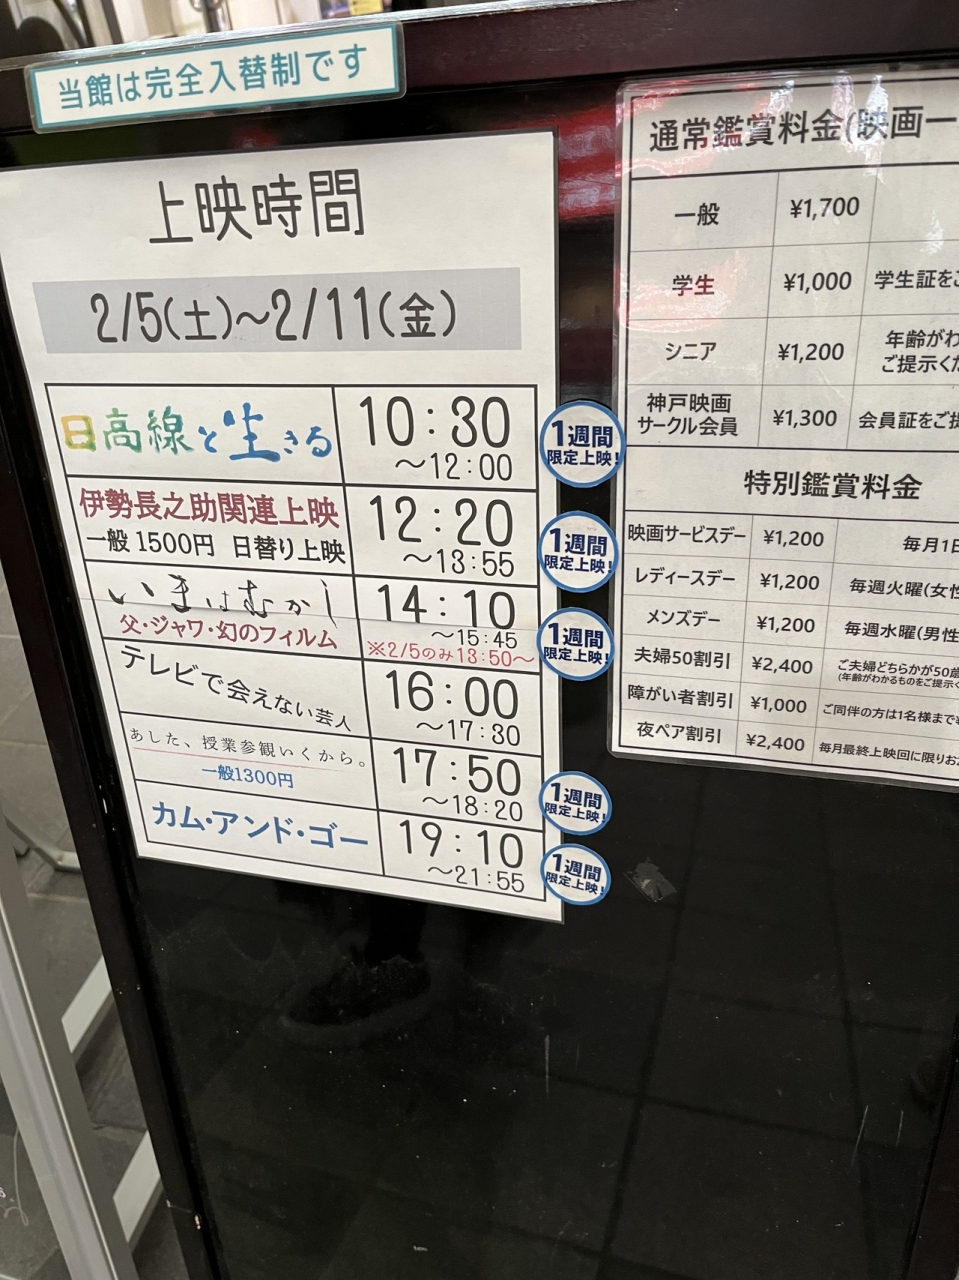 当館は完全入替制です
上映時間
2/5(土)～2/11(金)
日高線と生きる
10:30
～12:00
1週間
限定上映!
伊勢長之助関連上映
一般1500円 日替り上映
12:20
～13:55
1週間
限定上映!
いまはむかし
父・ジャワ・幻のフィルム
14:10
～15:45
※2/5のみ13:50～
1週間
限定上映!
テレビで会えない芸人
16:00
～17:30
あした、授業参観いくから。
一般1300円
17:50
～18:20
1週間
限定上映!
カム・アンド・ゴー
19:10
～21:55
1週間
限定上映!
通常鑑賞料金(映画一
一般 ¥1,700
学生 ¥1,000 学生証をご
シニア ¥1,200 年齢がわ
ご提示くだ
神戸映画
サークル会員 ¥1,300 会員証をご提
特別鑑賞料金
映画サービスデー ¥1,200 毎月1日
レディースデー ¥1,200 毎週火曜(女性
メンズデー ¥1,200 毎週水曜(男性
夫婦50割引 ¥2,400 ご夫婦どちらかが50歳
(年齢がわかるものをご提示く
障がい者割引 ¥1,000 ご同伴の方は1名様まで
夜ペア割引 ¥2,400 毎月最終上映回に限りお